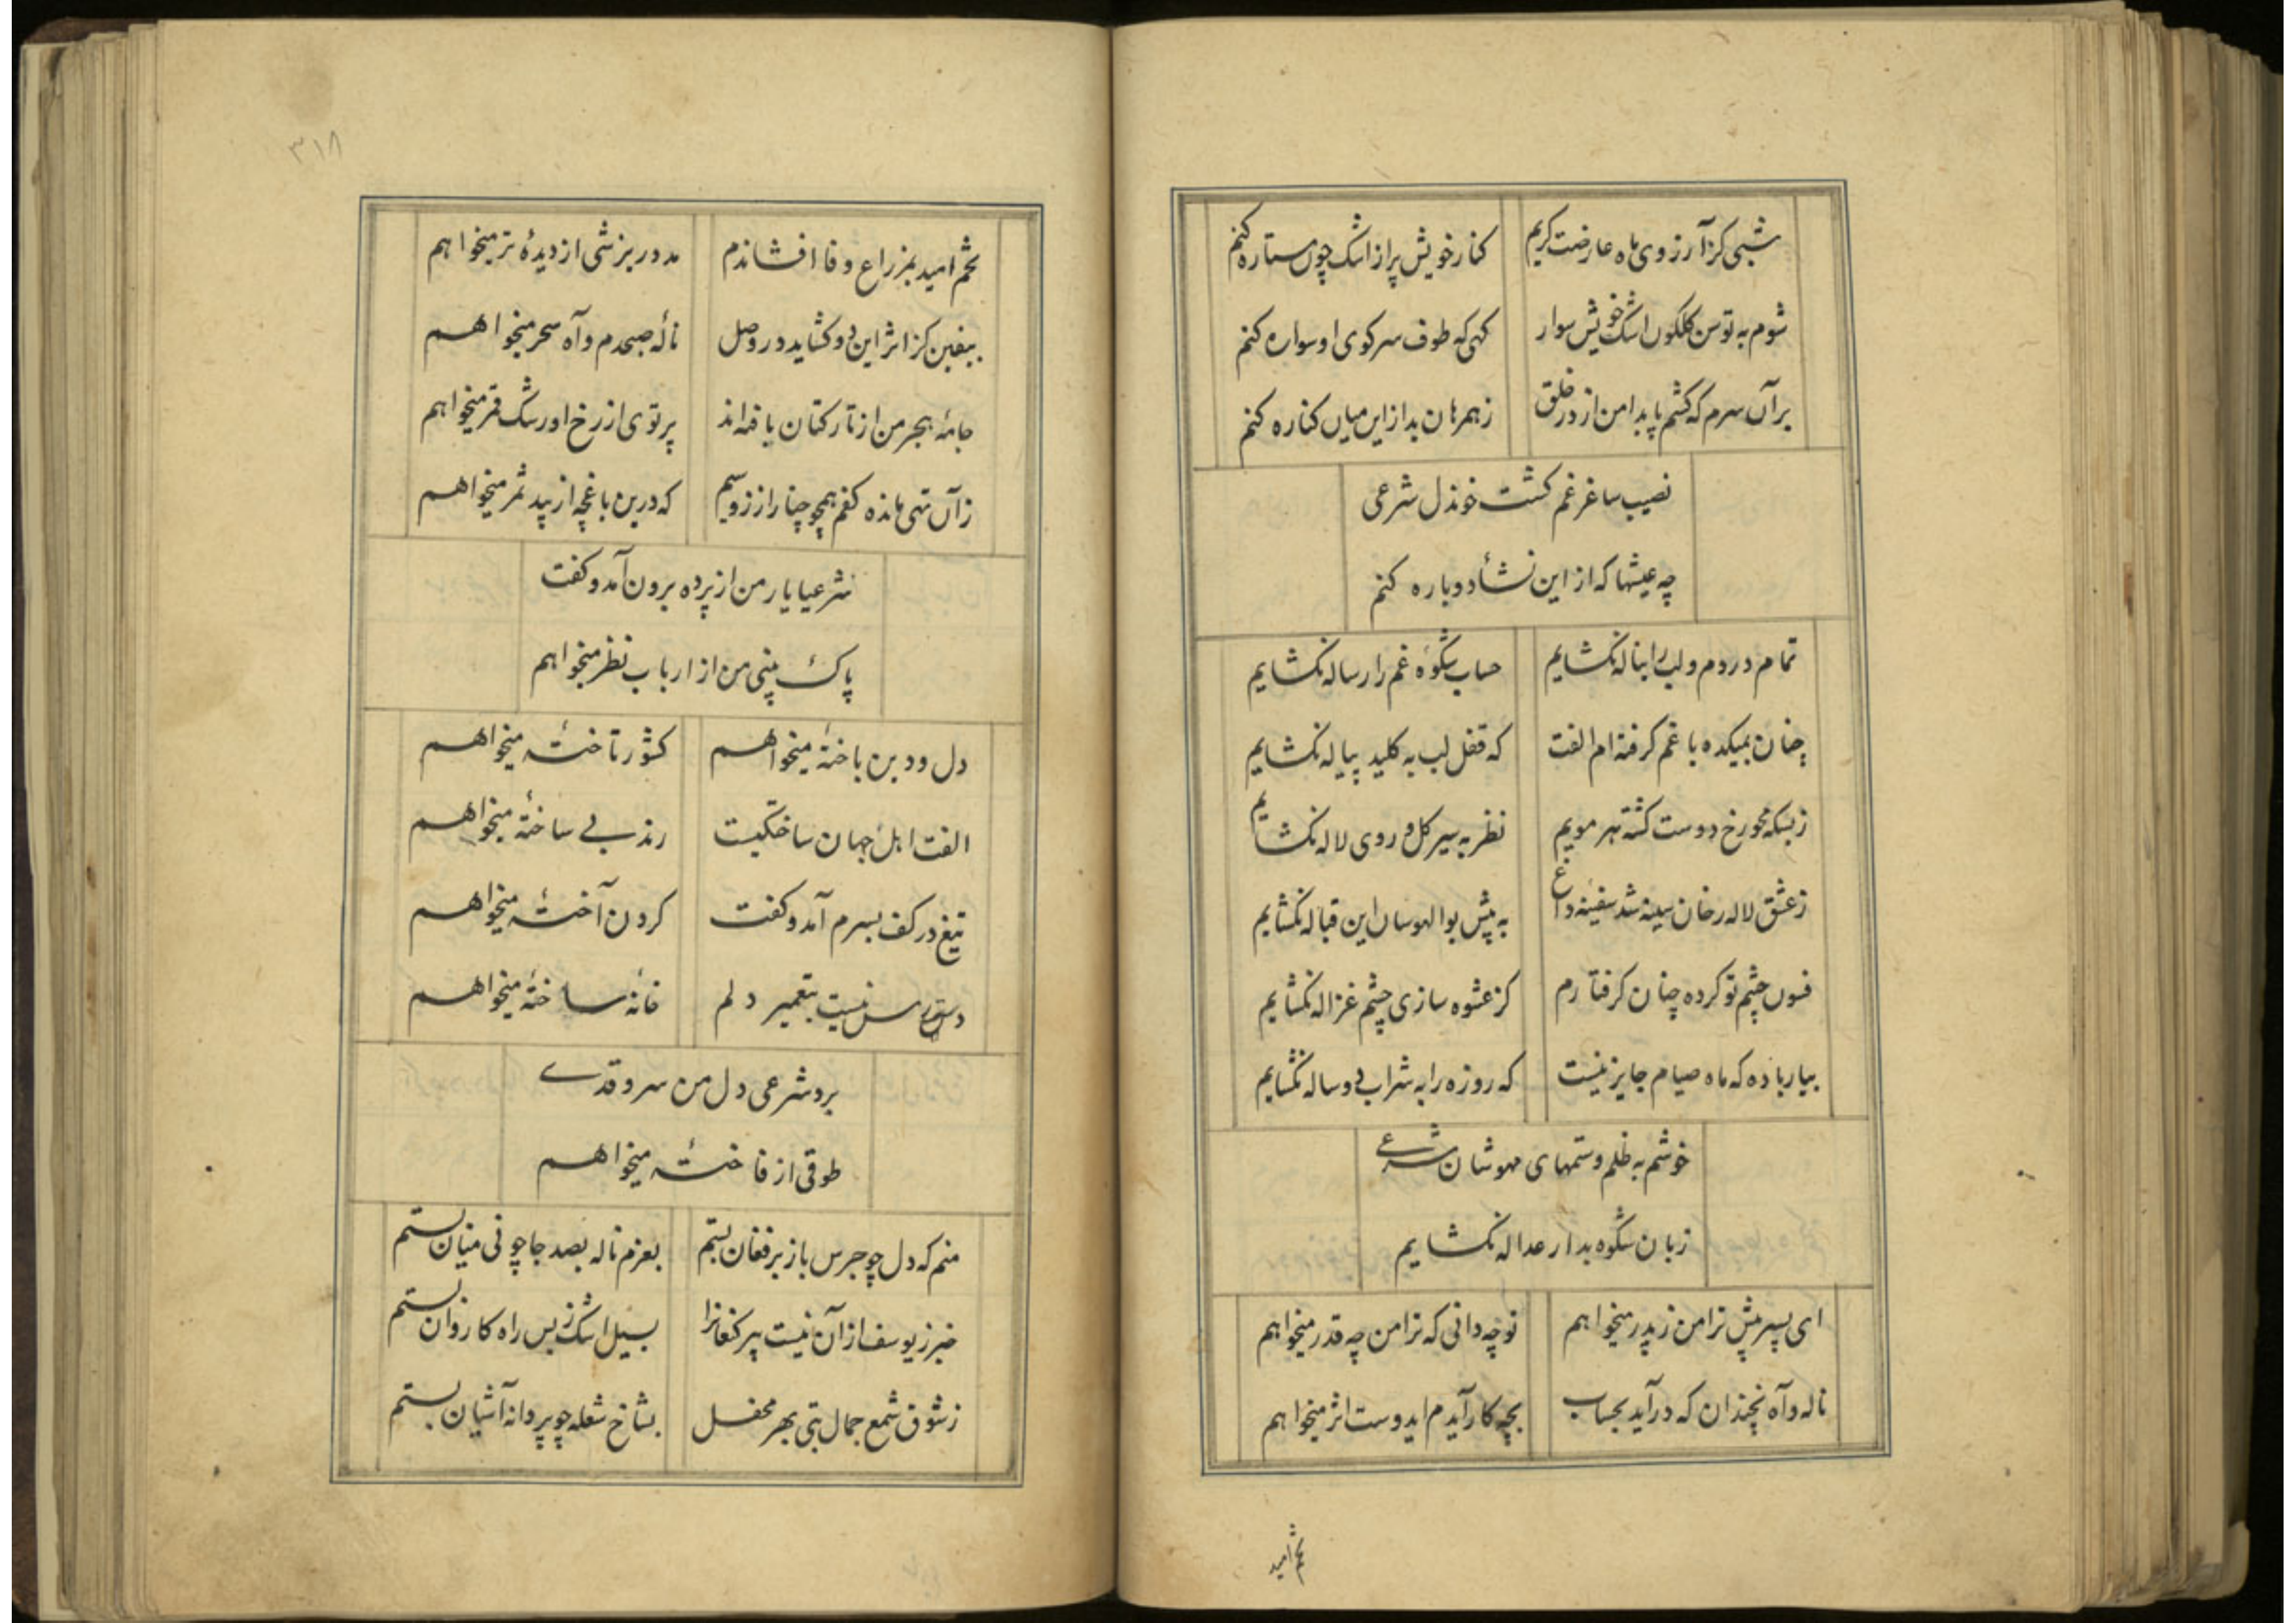 شبی کز آرزوی ماه عارضت کریم
کنار خویش پر از اشک چون ستاره کنم
شوم به توسن کلکون اشک خویش سوار
کهی که طوف سر کوی او سواره کنم
بر آن سرم که کشم پا بدامن از در خلق
ز همرهان بد از این میان کناره کنم
نصیب ساغر غم کشت خوندل شرعی
چه عیشها که از این نشأ دوباره کنم
تمام دردم و لب را بناله نکشایم
حساب شکوه غم را رساله نکشایم
چنان بمیکده با غم کرفته ام الفت
که قفل لب به کلید پیاله نکشایم
ز بسکه محو رخ دوست کشته هر مویم
نظر به سیر کل و روی لاله نکشایم
ز عشق لاله رخان سینه شد سفینه داغ
به پیش بوالهوسان این قباله نکشایم
فسون چشم تو کرده چنان کرفتارم
کز عشوه سازی چشم غزاله نکشایم
بیار باده که ماه صیام جایز نیست
که روزه را به شراب دوساله نکشایم
خوشم به ظلم و ستمهای مهوشان شرعی
زبان شکوه بدار عداله نکشایم
ای پسر پیش ترا من ز پدر میخواهم
تو چه دانی که ترا من چه قدر میخواهم
ناله و آه نچندان که در آید بحساب
بچه کار آیدم ایدوست اثر میخواهم
تخم امید
۳۱۸
تخم امید بمزراع وفا افشاندم
مدد ریزشی از دیدهٔ تر میخواهم
بیقین کز اثر این دو کشاید در وصل
نالهٔ صبحدم و آه سحر میخواهم
جامهٔ هجر من از تار کتان بافته‌اند
پرتوی از رخ او رشک قمر میخواهم
زآن تهی مانده کفم همچو چنار از زر و سیم
که درین باغچه از بید ثمر میخواهم
شرعیا یار من از پرده برون آمد و کفت
پاک بینی من از ارباب نظر میخواهم
دل و دین باختهٔ میخواهم
کشور تاختهٔ میخواهم
الفت اهل جهان ساختکیست
رند بی ساختهٔ میخواهم
تیغ در کف بسرم آمد و کفت
کردن آختهٔ میخواهم
دسترس نیست بتعمیر دلم
خانه ساختهٔ میخواهم
برد شرعی دل من سرو قدی
طوقی از فاختهٔ میخواهم
منم که دل چو جرس باز بر فغان بستم
بعزم ناله بصد جا چو نی میان بستم
خبر ز یوسف از آن نیست پیر کنعانرا
بسیل اشک ز بس راه کاروان بستم
ز شوق شمع جمال بتی بهر محفل
بشاخ شعله چو پروانه آشیان بستم